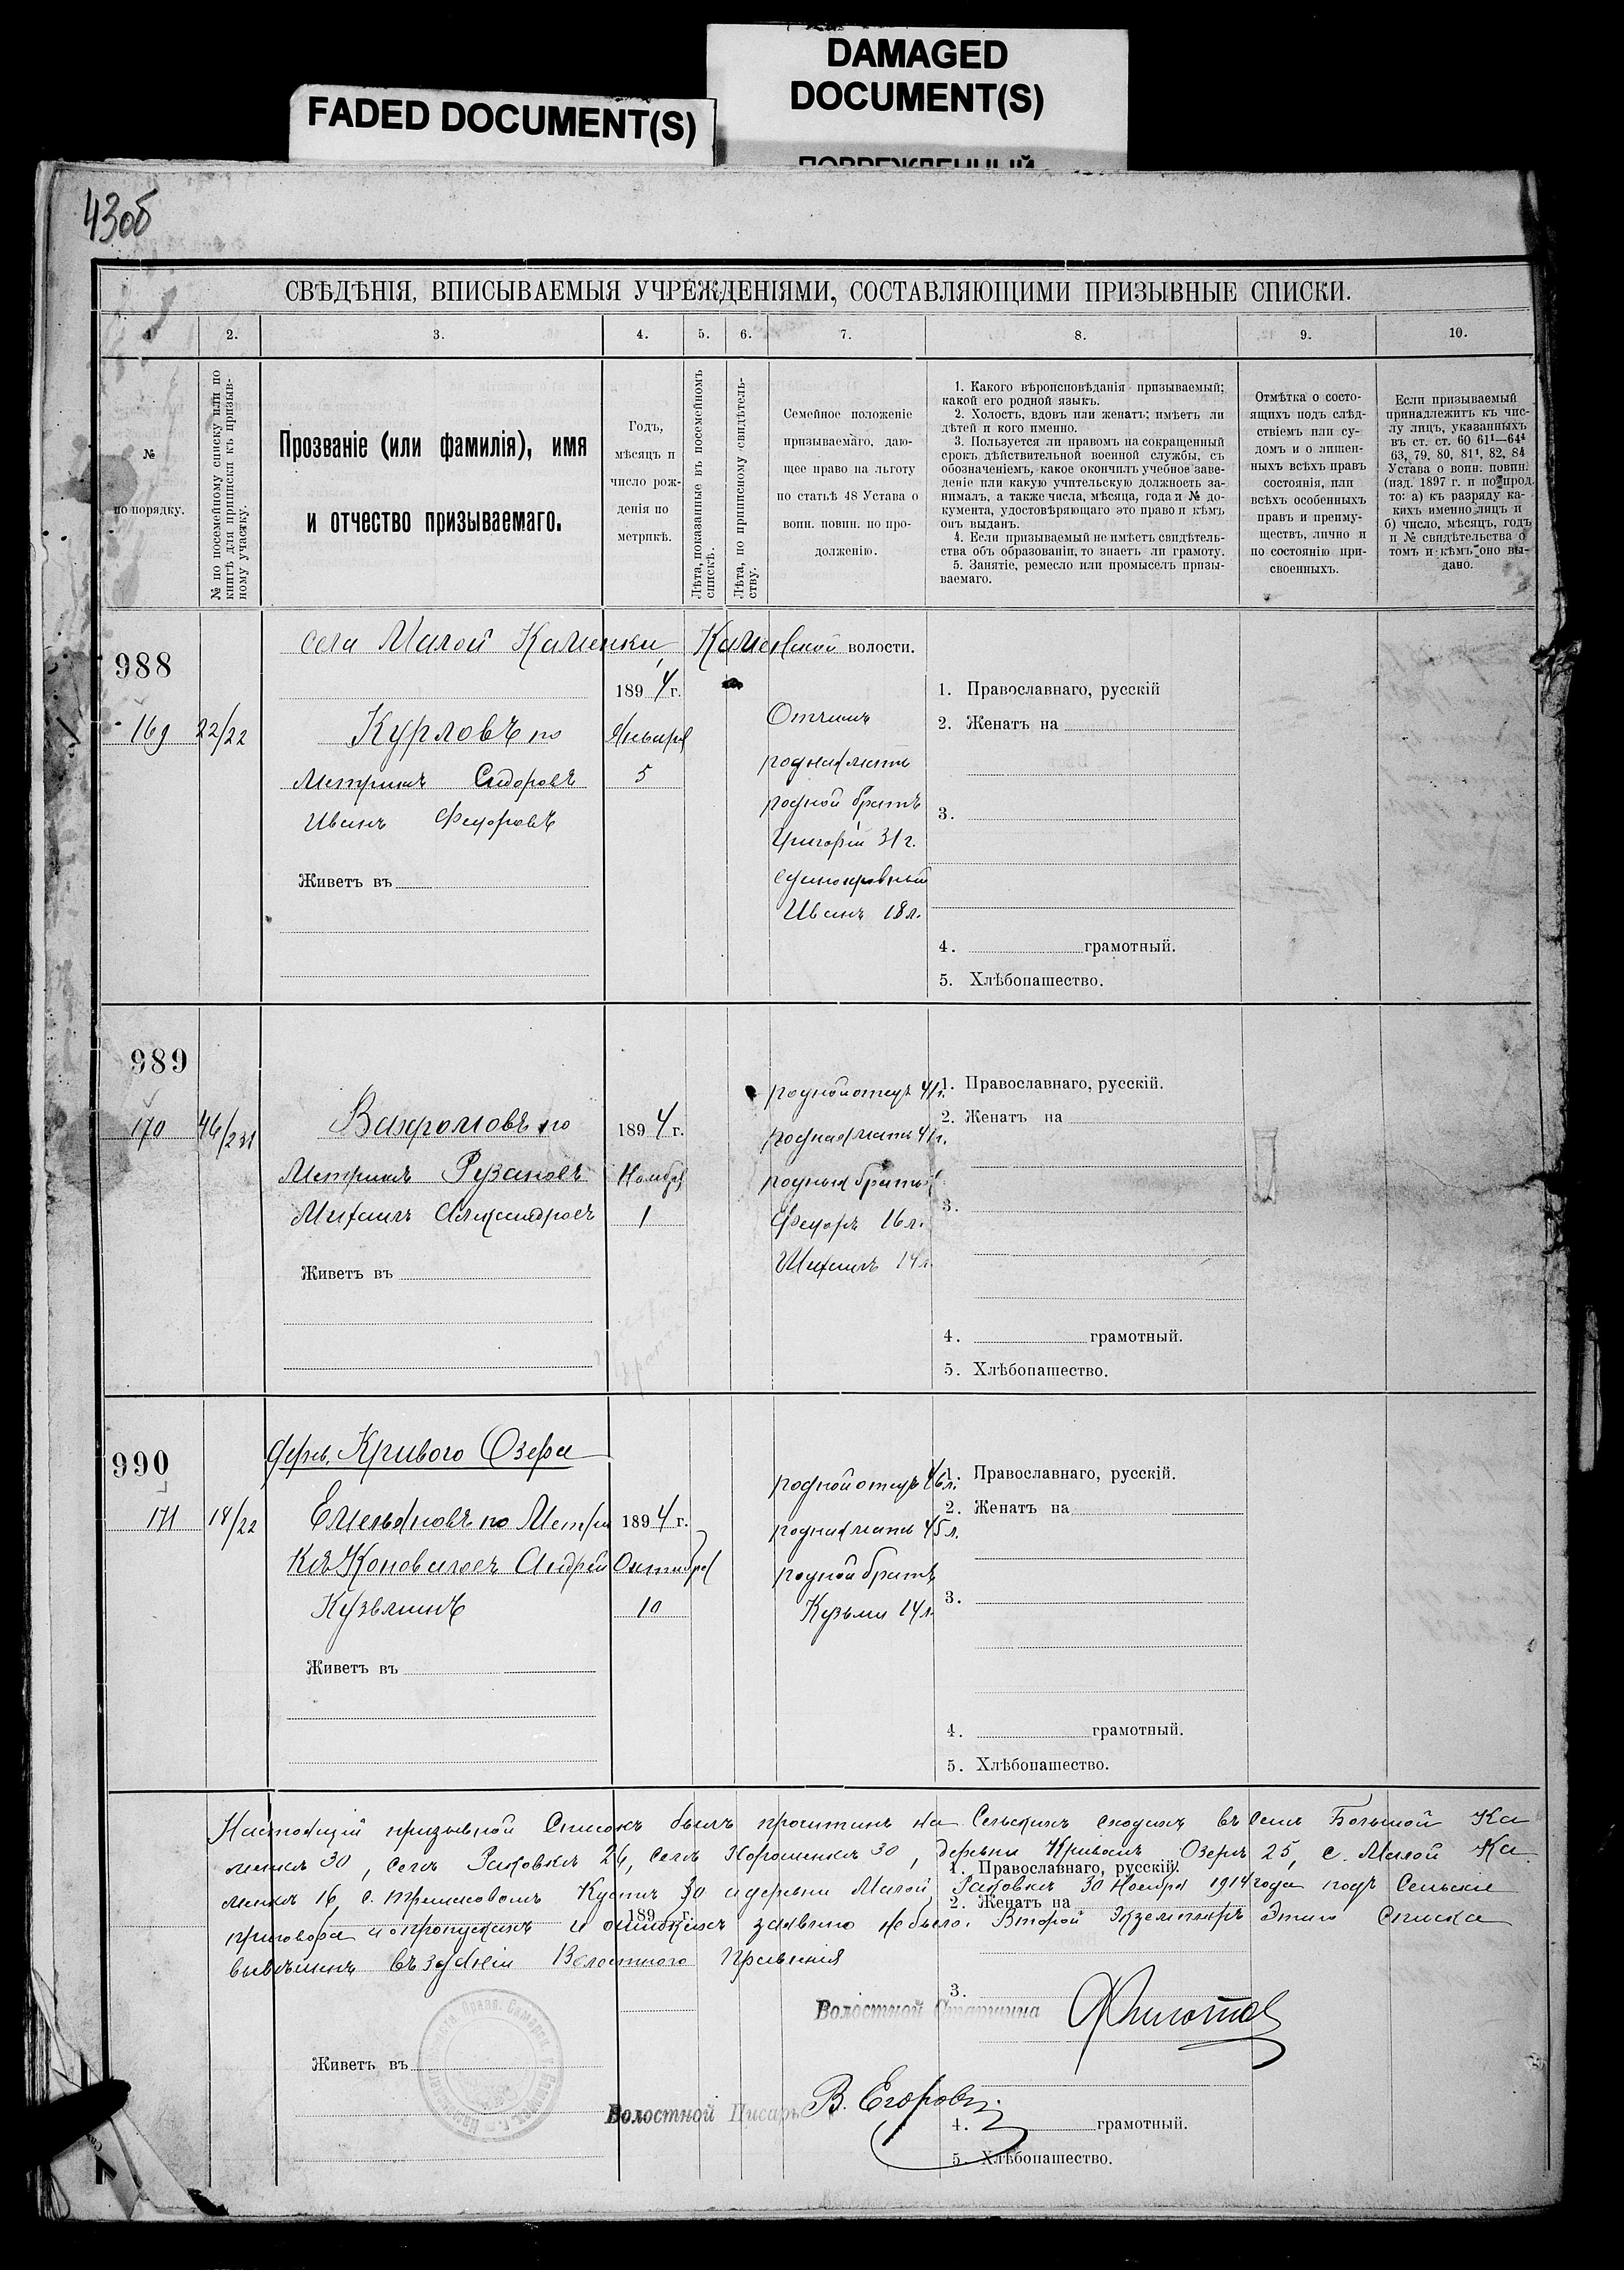 FADED DOCUMENT(S)
DAMAGED
DOCUMENT(S)
ПОВРЕЖДЕННЫЙ
43об
СВѢДѢНІЯ, ВПИСЫВАЕМЫЯ УЧРЕЖДЕНІЯМИ, СОСТАВЛЯЮЩИМИ ПРИЗЫВНЫЕ СПИСКИ.
1 2. 3. 4. 5. 6. 7. 8. 9. 10.
№
по порядку.
№ по посемейному списку или по
книгѣ для приписки къ призыв-
ному участку.
Прозваніе (или фамилія), имя
и отчество призываемаго.
Годъ,
мѣсяцъ и
число рож-
денія по
метрикѣ.
Лѣта, показанные въ посемейномъ
спискѣ.
Лѣта, по приписному свидѣтель-
ству.
Семейное положеніе
призываемаго, даю-
щее право на льготу
по статьѣ 48 Устава о
воин. повин. по про-
долженію.
1. Какого вѣроисповѣданія призываемый;
какой его родной языкъ.
2. Холостъ, вдовъ или женатъ; имѣетъ ли
дѣтей и кого именно.
3. Пользуется ли правомъ на сокращенный
срокъ дѣйствительной военной службы, съ
обозначеніемъ, какое окончилъ учебное заве-
деніе или какую учительскую должность за-
нималъ, а также числа, мѣсяца, года и № до-
кумента, удостовѣряющаго это право и кѣмъ
онъ выданъ.
4. Если призываемый не имѣетъ свидѣтель-
ства объ образованіи, то знаетъ ли грамоту.
5. Занятіе, ремесло или промыселъ призы-
ваемаго.
Отмѣтка о состо-
ящихъ подъ слѣд-
ствіемъ или су-
домъ и о лишен-
ныхъ всѣхъ правъ
состоянія, или
всѣхъ особенныхъ
правъ и преиму-
ществъ, лично и
по состоянію при-
своенныхъ.
Если призываемый
принадлежитъ къ чис-
лу лицъ, указанныхъ
въ ст. ст. 60 61¹—64⁴
63, 79, 80, 81¹, 82, 84
Устава о воин. повин.
(изд. 1897 г. и по прод.
то: а) къ разряду ка-
кихъ именно лицъ и
б) число, мѣсяцъ, годъ
и № свидѣтельства о
томъ и кѣмъ оно вы-
дано.
села Малой Каменки, Каменской волости.
988
169 22/22
Курловъ по
Метрикѣ Сидоровъ
Иванъ Федоровъ
Живетъ въ
1894 г.
Января
5
Отчимъ
родная мать
родной братъ
Григорій 31 г.
единокровный
Иванъ 18 л.
1. Православнаго, русскій
2. Женатъ на
3.
4. грамотный.
5. Хлѣбопашество.
989
170 46/231
Вахромовъ по
Метрикѣ Рузановъ
Михаилъ Александровъ
Живетъ въ
1894 г.
Ноября
1
родной отецъ 41 г.
родная мать 41 г.
родные братья
Федоръ 16 л.
Михаилъ 14 л.
1. Православнаго, русскій.
2. Женатъ на
3.
4. грамотный.
5. Хлѣбопашество.
990
171 18/22
дерев. Кривого Озера
Емельяновъ по Метри
кѣ Коноваловъ Андрей
Кузьминъ
Живетъ въ
1894 г.
Октября
10
родной отецъ 46 л.
родная мать 45 л.
родной братъ
Кузьма 14 л.
1. Православнаго, русскій.
2. Женатъ на
3.
4. грамотный.
5. Хлѣбопашество.
Настоящій призывной Списокъ былъ прочитанъ на Сельскихъ сходахъ въ Селѣ Большой Ка
менкѣ 30, селѣ Раковкѣ 26, селѣ Хорошенькѣ 30, деревни Кривомъ Озерѣ 25, с. Малой Ка
менкѣ 16, 30 и деревни Малой Раковкѣ 30 Ноября 1914 года подъ Сельскіе
приговора и о пропускахъ и ошибкахъ заявлено не было. Второй Экземпляръ Этого Списка
вывѣшенъ въ зданіи Волостного Правленія
1. Православнаго, русскій.
2. Женатъ на
189 г.
3.
Волостной Старшина
Живетъ въ
Волостной Писарь В. Егоровъ
4. грамотный.
5. Хлѣбопашество.